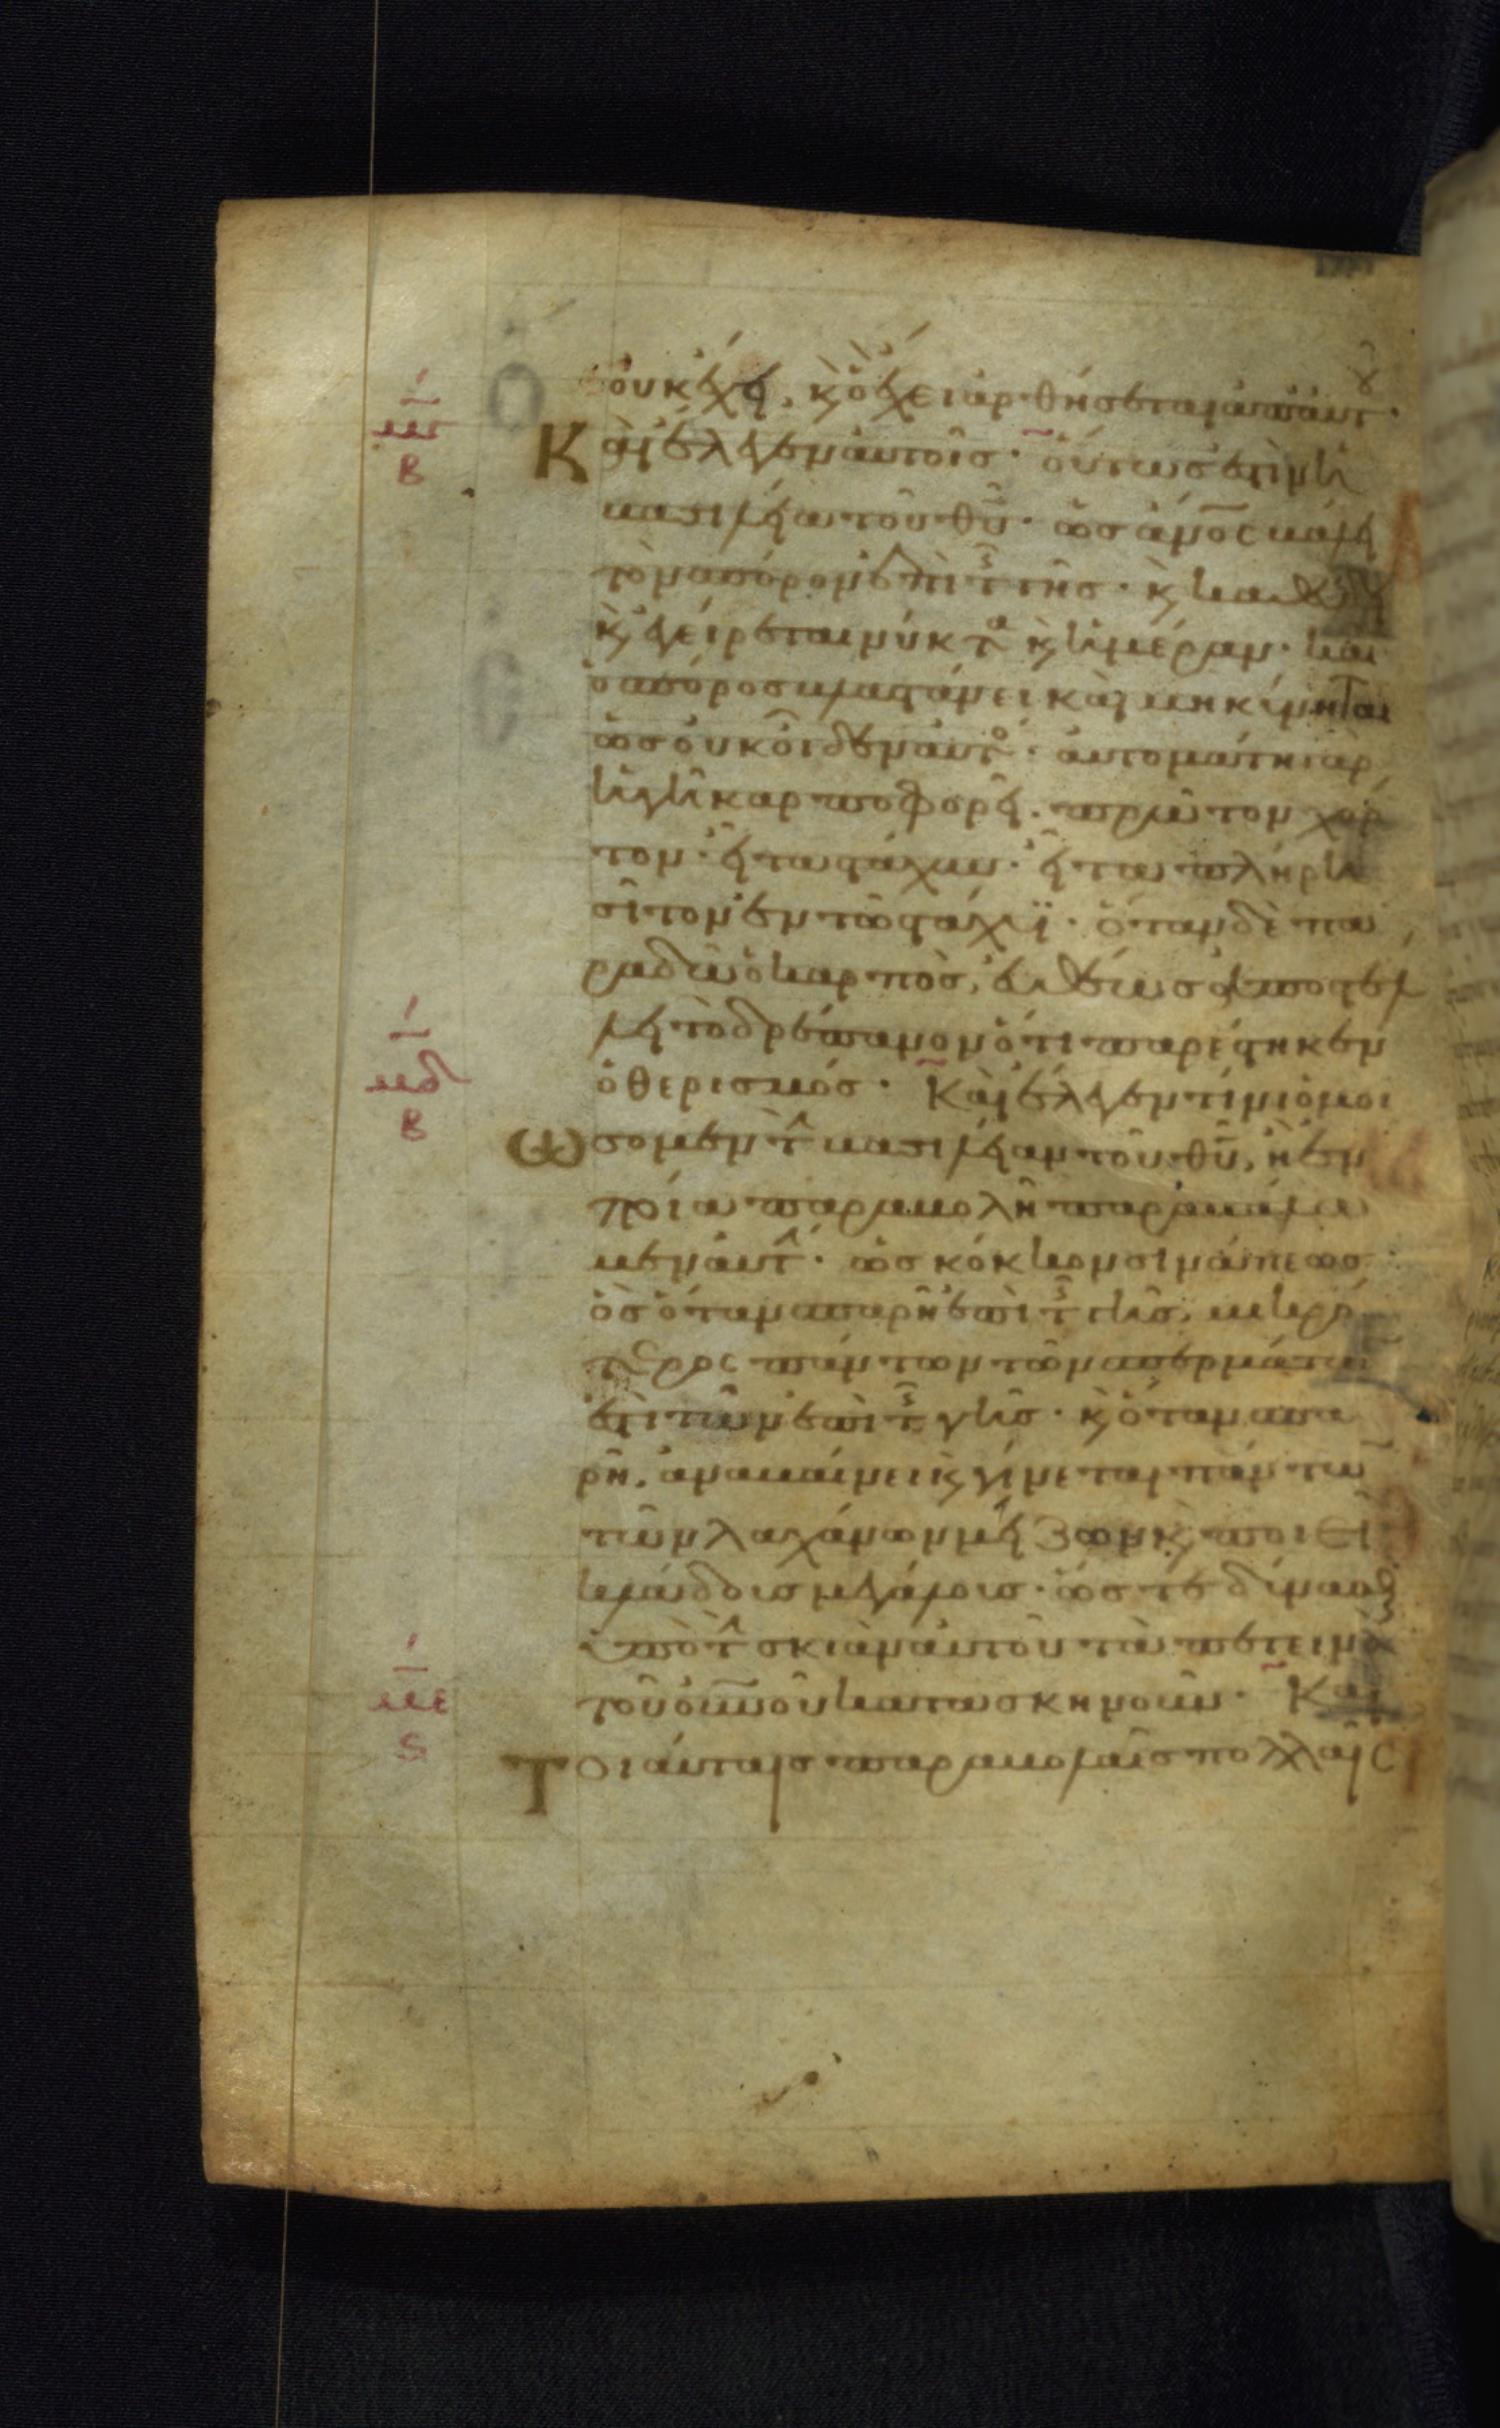 οὐκ ἔχει, κ ὃ ἔχει ἀρθήσεται ἀπ αὐτοῦ·
μγ
β
Καὶ ἔλεγεν αὐτοῖς· οὕτως ἐστὶν ἡ
βασιλεία τοῦ θυ· ὡς ἄνος βάλει
τὸν σπόρον ἐπὶ τῆς γῆς· κ καθεύδη
κ ἐγείρεται νύκτα κ ἡμέραν· και
ὁ σπόρος βλαστάνει καὶ μηκύνηται
ὡς οὐκ οἶδεν αὐτός· αὐτομάτη γὰρ
ἡ γῆ καρποφορεῖ· πρῶτον χόρ
τον· εἶτα στάχυν· εἶτα πλήρη
σῖτον ἐν τῶ στάχυϊ· ὅταν δὲ πα
ραδῶ ὁ καρπὸς, εὐθέως ἀποστέλ
λει τὸ δρέπανον ὅτι παρέστηκεν
μδ
β
ὁ θερισμός· Καὶ ἔλεγεν τίνι ὁμοι
ώσομεν τὴν βασιλείαν τοῦ θυ, ἢ ἐν
ποία παραβολῆ παραβάλω
μεν αὐτήν· ὡς κόκκον σινάπεως
ὃς ὅταν σπαρῆ ἐπὶ τῆς γῆς, μικρό
τερος πάντων τῶν σπερμάτων
ἐστὶ τῶν ἐπὶ τῆς γῆς· κ ὅταν σπα
ρῆ, ἀναβαίνει κ γίνεται πάντων
τῶν λαχάνων μείζων κ ποιεῖ
κλάδους μεγάλους· ὥστε δύνασθαι
ὑπὸ τὴν σκιὰν αὐτοῦ τὰ πετεινὰ
με
ς
τοῦ οὐνοῦ κατασκηνοῦν· Καὶ
Τοιαύταις παραβολαῖς πολλαῖς